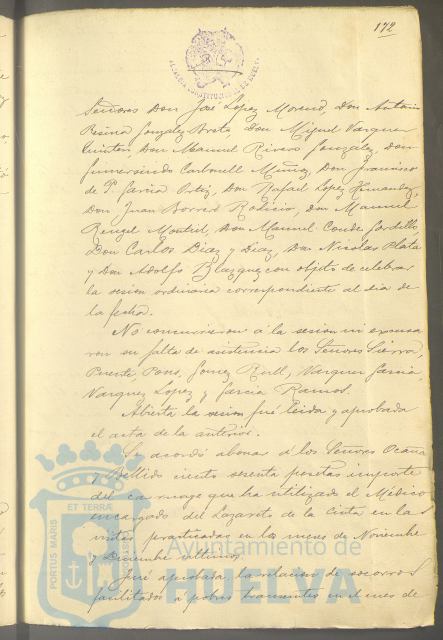 172
ALCALDIA CONSTITUCIONAL DE HUELVA
Señores Don José Lopez Moreno, Don Antonio
Resina Gonzalez Breto, Don Miguel Vazquez
Quintero, Don Manuel Rivero Gonzalez, Don
Gumersindo Carbonell Muñoz, Don Francisco
de P. Garcia Ortiz, Don Rafael Lopez Hernandez,
Don Juan Borrero Robicio, Don Manuel
Rengel Montiel, Don Manuel Conde Gordillo,
Don Carlos Diaz y Diaz, Don Nicolas Plata
y Don Adolfo Blazquez con objeto de celebrar
la sesion ordinaria correspondiente al dia de
la fecha.
No concurrieron á la sesion ni escusa
ron su falta de asistencia los Señores Sierra,
Puente, Pons, Gomez Rull, Vazquez Garcia,
Vazquez Lopez y Garcia Ramos.
Abierta la sesion fué leida y aprobada
el acta de la anterior.
Se acordó abonar á los Señores Ocaña
y Bellido ciento sesenta pesetas importe
del carruage que ha utilizado el Médico
encargado del Lazareto de la Cinta en las
visitas practicadas en los meses de Noviembre
y Diciembre ultimos.
Fué aprobada la relacion de socorros
facilitados á pobres transeuntes en el mes de
PORTUS MARIS ET TERRAE
Ayuntamiento de
HUELVA